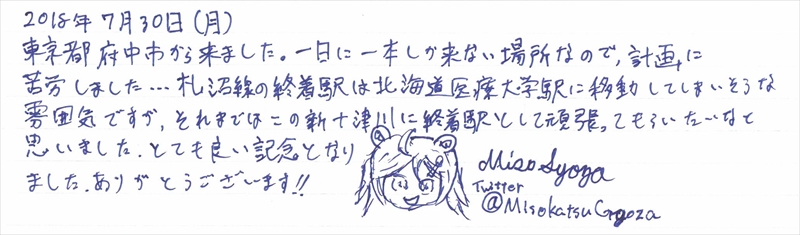 2018年7月30日(月)
東京都府中市から来ました。一日に一本しか来ない場所なので、計画に
苦労しました…札沼線の終着駅は北海道医療大学駅に移動してしまいそうな
雰囲気ですが、それまではこの新十津川に終着駅として頑張ってもらいたいなと
思いました。とても良い記念となり
ました。ありがとうございます!!
Miso
Twitter